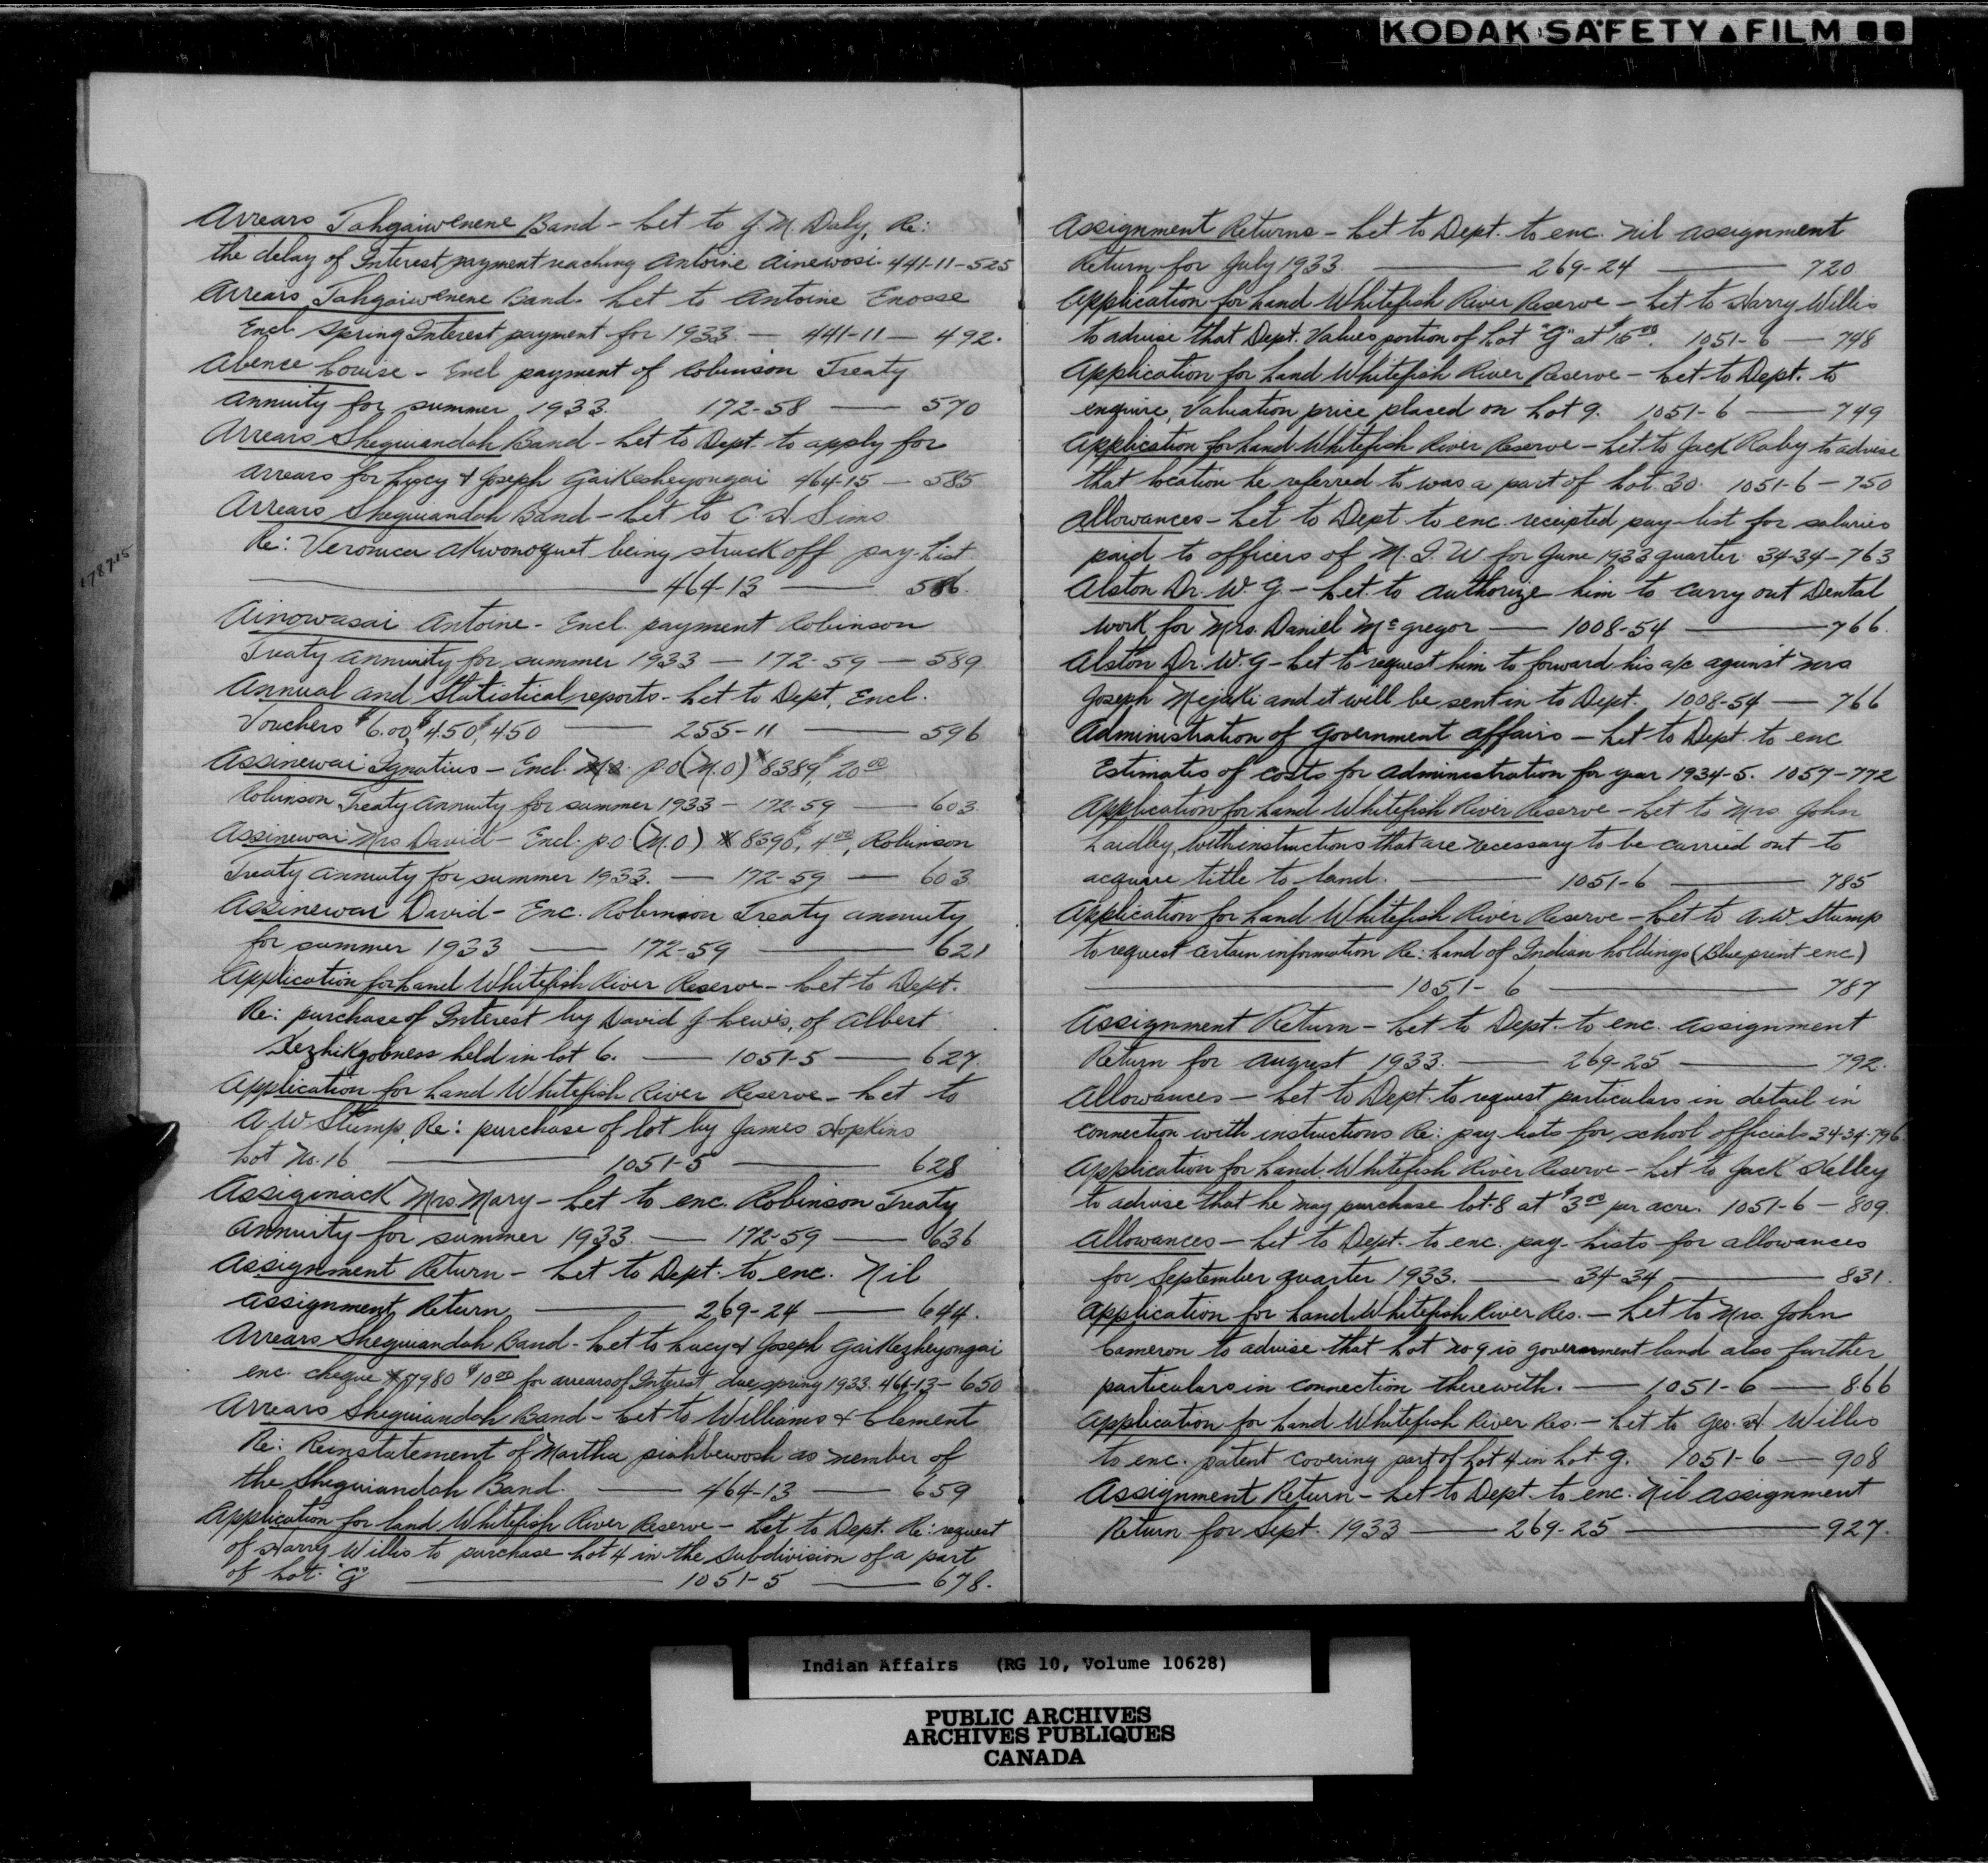 KODAK SAFETY FILM
Arrears Tahgaiwenene Band - Let to J. M. Daly, Re:
the delay of Interest payment reaching Antoine Ainewosi - 441-11-525
Arrears Tahgaiwenene Band. Let to Antoine Enosse
Encl. Spring Interest payment for 1933 — 441-11 — 492.
Abence Louise - Encl payment of Robinson Treaty
annuity for summer 1933. 172-58 — 570
Arrears Sheguiandah Band - Let to Dept. to apply for
arrears for Lucy & Joseph Gaikesheyongai 464-15 — 585
Arrears Sheguiandah Band - Let to C. H. Sims
Re: Veronica Akwonoquet being struck off pay-list
— 464-13 — 586.
Ainowasai Antoine - Encl. payment Robinson
Treaty Annuity for summer 1933 — 172-59 — 589
Annual and Statistical reports - Let to Dept, Encl.
Vouchers $6.00, $4.50, $4.50 — 255-11 — 596
Assinewai Ignatius - Encl. P.O (M.O) #8389, $20.00
Robinson Treaty Annuity for summer 1933 — 172-59 — 603
Assinewai Mrs David - Encl. P.O (M.O) #8390, $4.00, Robinson
Treaty Annuity for summer 1933. — 172-59 — 603
Assinewai David - Enc. Robinson Treaty annuity
for summer 1933 — 172-59 — 621
Application for Land Whitefish River Reserve - Let to Dept.
Re: purchase of Interest by David J. Lewis, of Albert
Kezhikgobness held in lot 6. — 1051-5 — 627
Application for Land Whitefish River Reserve - Let to
A.W Stump, Re: purchase of lot by James Hopkins
Lot No. 16 — 1051-5 — 628
Assiginack Mrs Mary - Let to enc. Robinson Treaty
Annuity for summer 1933. — 172-59 — 636
Assignment Return - Let to Dept. to enc. Nil
assignment Return — 269-24 — 644.
Arrears Sheguiandah Band - Let to Lucy & Joseph Gaikezheyongai
enc. cheque #7980 $10.00 for arrears of Interest due spring 1933. 464-13 - 650
Arrears Sheguiandah Band - Let to Williams & Clement
Re: Reinstatement of Martha piahbewosh as member of
the Sheguiandah Band. — 464-13 — 659
Application for land Whitefish River Reserve - Let to Dept. Re: request
of Harry Willis to purchase Lot 4 in the subdivision of a part
of Lot "G" — 1051-5 — 678.
Assignment Returns - Let to Dept. to enc. Nil assignment
Return for July 1933. — 269-24 — 720
Application for Land Whitefish River Reserve - Let to Harry Willis
to advise that Dept. values portion of Lot "G" at $15.00. 1051-6 — 748
Application for Land Whitefish River Reserve - Let to Dept. to
enquire, Valuation price placed on Lot 9. 1051-6 — 749
Application for Land Whitefish River Reserve - Let to Jack Raby to advise
that location he referred to was a part of Lot 30. 1051-6 — 750
Allowances - Let to Dept to enc. receipted pay-list for salaries
paid to officers of M. I. W. for June 1933 quarter. 34-34 — 763
Alston Dr. W. G. - Let. to authorize him to carry out Dental
work for Mrs. Daniel McGregor — 1008-54 — 766.
Alston Dr. W. G - Let to request him to forward his a/c against Mrs
Joseph Mejaki and it will be sent in to Dept. 1008-54 — 766
Administration of Government affairs - Let to Dept. to enc
Estimates of costs for administration for year 1934-5. 1057-772
Application for Land Whitefish River Reserve - Let to Mrs. John
Laidley, with instructions that are necessary to be carried out to
acquire title to land. — 1051-6 — 785
Application for Land Whitefish River Reserve - Let to A.W. Stump
to request certain information Re: Land of Indian holdings (Blueprint enc)
— 1051-6 — 787
Assignment Return - Let to Dept. to enc. Assignment
Return for August 1933. — 269-25 — 792.
Allowances - Let to Dept. to request particulars in detail in
connection with instructions Re: pay lists for school officials 34-34-796
Application for Land Whitefish River Reserve - Let to Jack Kelley
to advise that he may purchase lot 8 at $3.00 per acre. 1051-6 — 809.
Allowances - Let to Dept. to enc. pay-lists for allowances
for September quarter 1933. — 34-34 — 831.
Application for Land Whitefish River Res. - Let to Mrs. John
Cameron to advise that Lot No 9 is government land also further
particulars in connection therewith. — 1051-6 — 866
Application for Land Whitefish River Res. - Let to Geo. H Willis
to enc. patent covering part of Lot 4 in Lot g. 1051-6 — 908
Assignment Return - Let to Dept. to enc. Nil assignment
Return for Sept. 1933 — 269-25 — 927.
Indian Affairs (RG 10, Volume 10628)
PUBLIC ARCHIVES
ARCHIVES PUBLIQUES
CANADA